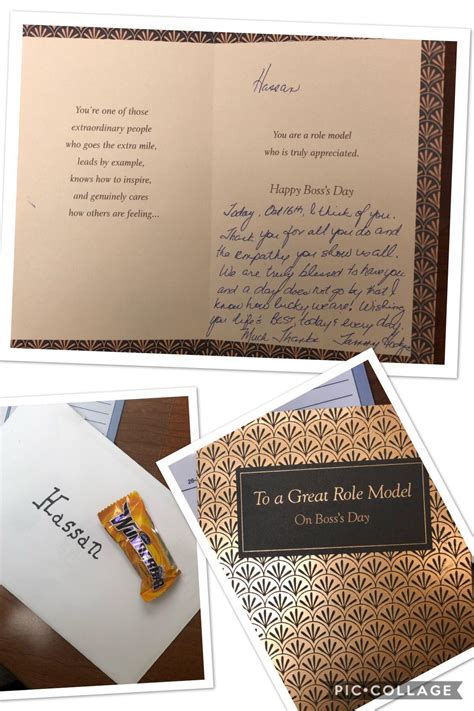 You're one of those
extraordinary people
who goes the extra mile,
leads by example,
knows how to inspire,
and genuinely cares
how others are feeling...
Hassan
You are a role model
who is truly appreciated.
Happy Boss's Day
Today, Oct 16th, I think of you.
Thank you for all you do and
the empathy you show us all.
We are truly blessed to have you
and a day does not go by that I
know how lucky we are! Wishing
you life's BEST, today & every day.
Much Thanks Tammy
Hassan
To a Great Role Model
On Boss's Day
PIC•COLLAGE